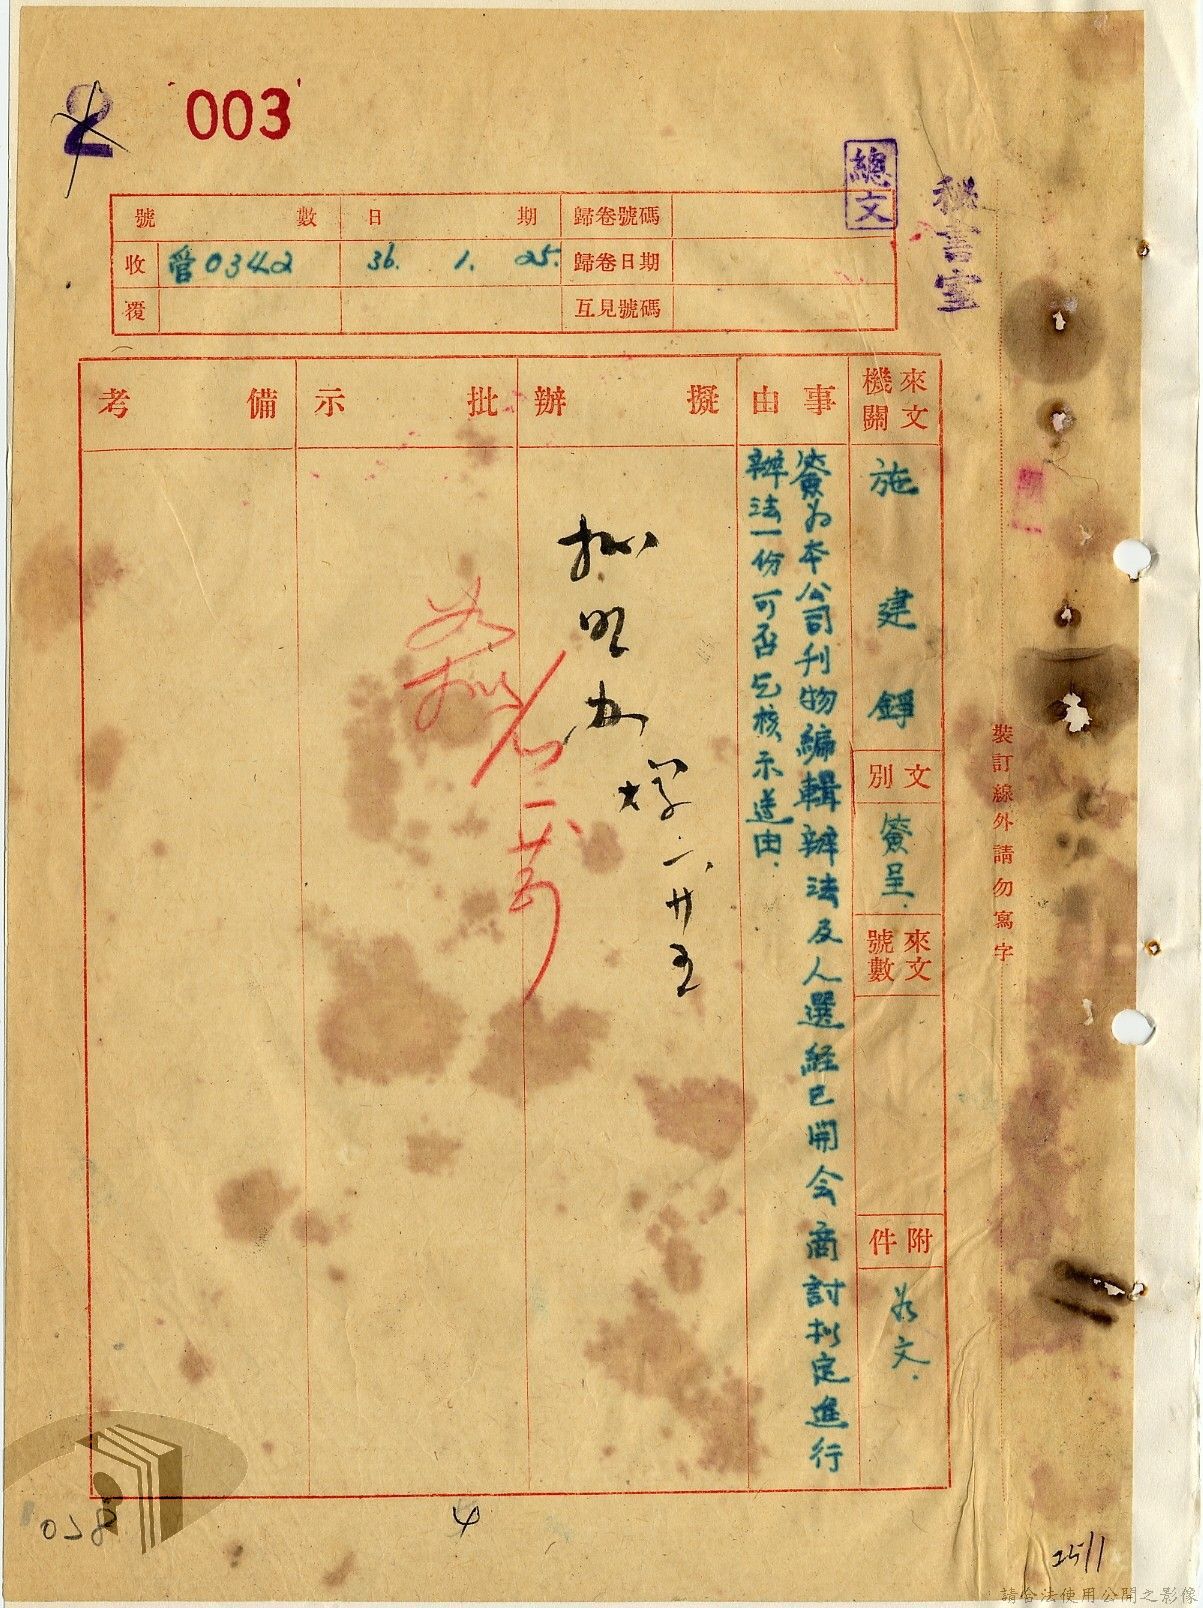 2
003
總文
秘書室
號數 日期 歸卷號碼
收 管0342 36. 1. 25. 歸卷日期
覆 互見號碼
來文機關
施建錚
文別
簽呈.
來文號數
附件
如文.
事由
簽為本公司刊物編輯辦法及人選経已開会商討拟定進行
辦法一份可否乞核示遵由.
擬辦
拟
一、廿五
批示
備考
裝訂線外請勿寫字
4
25/1
請合法使用公開之影像